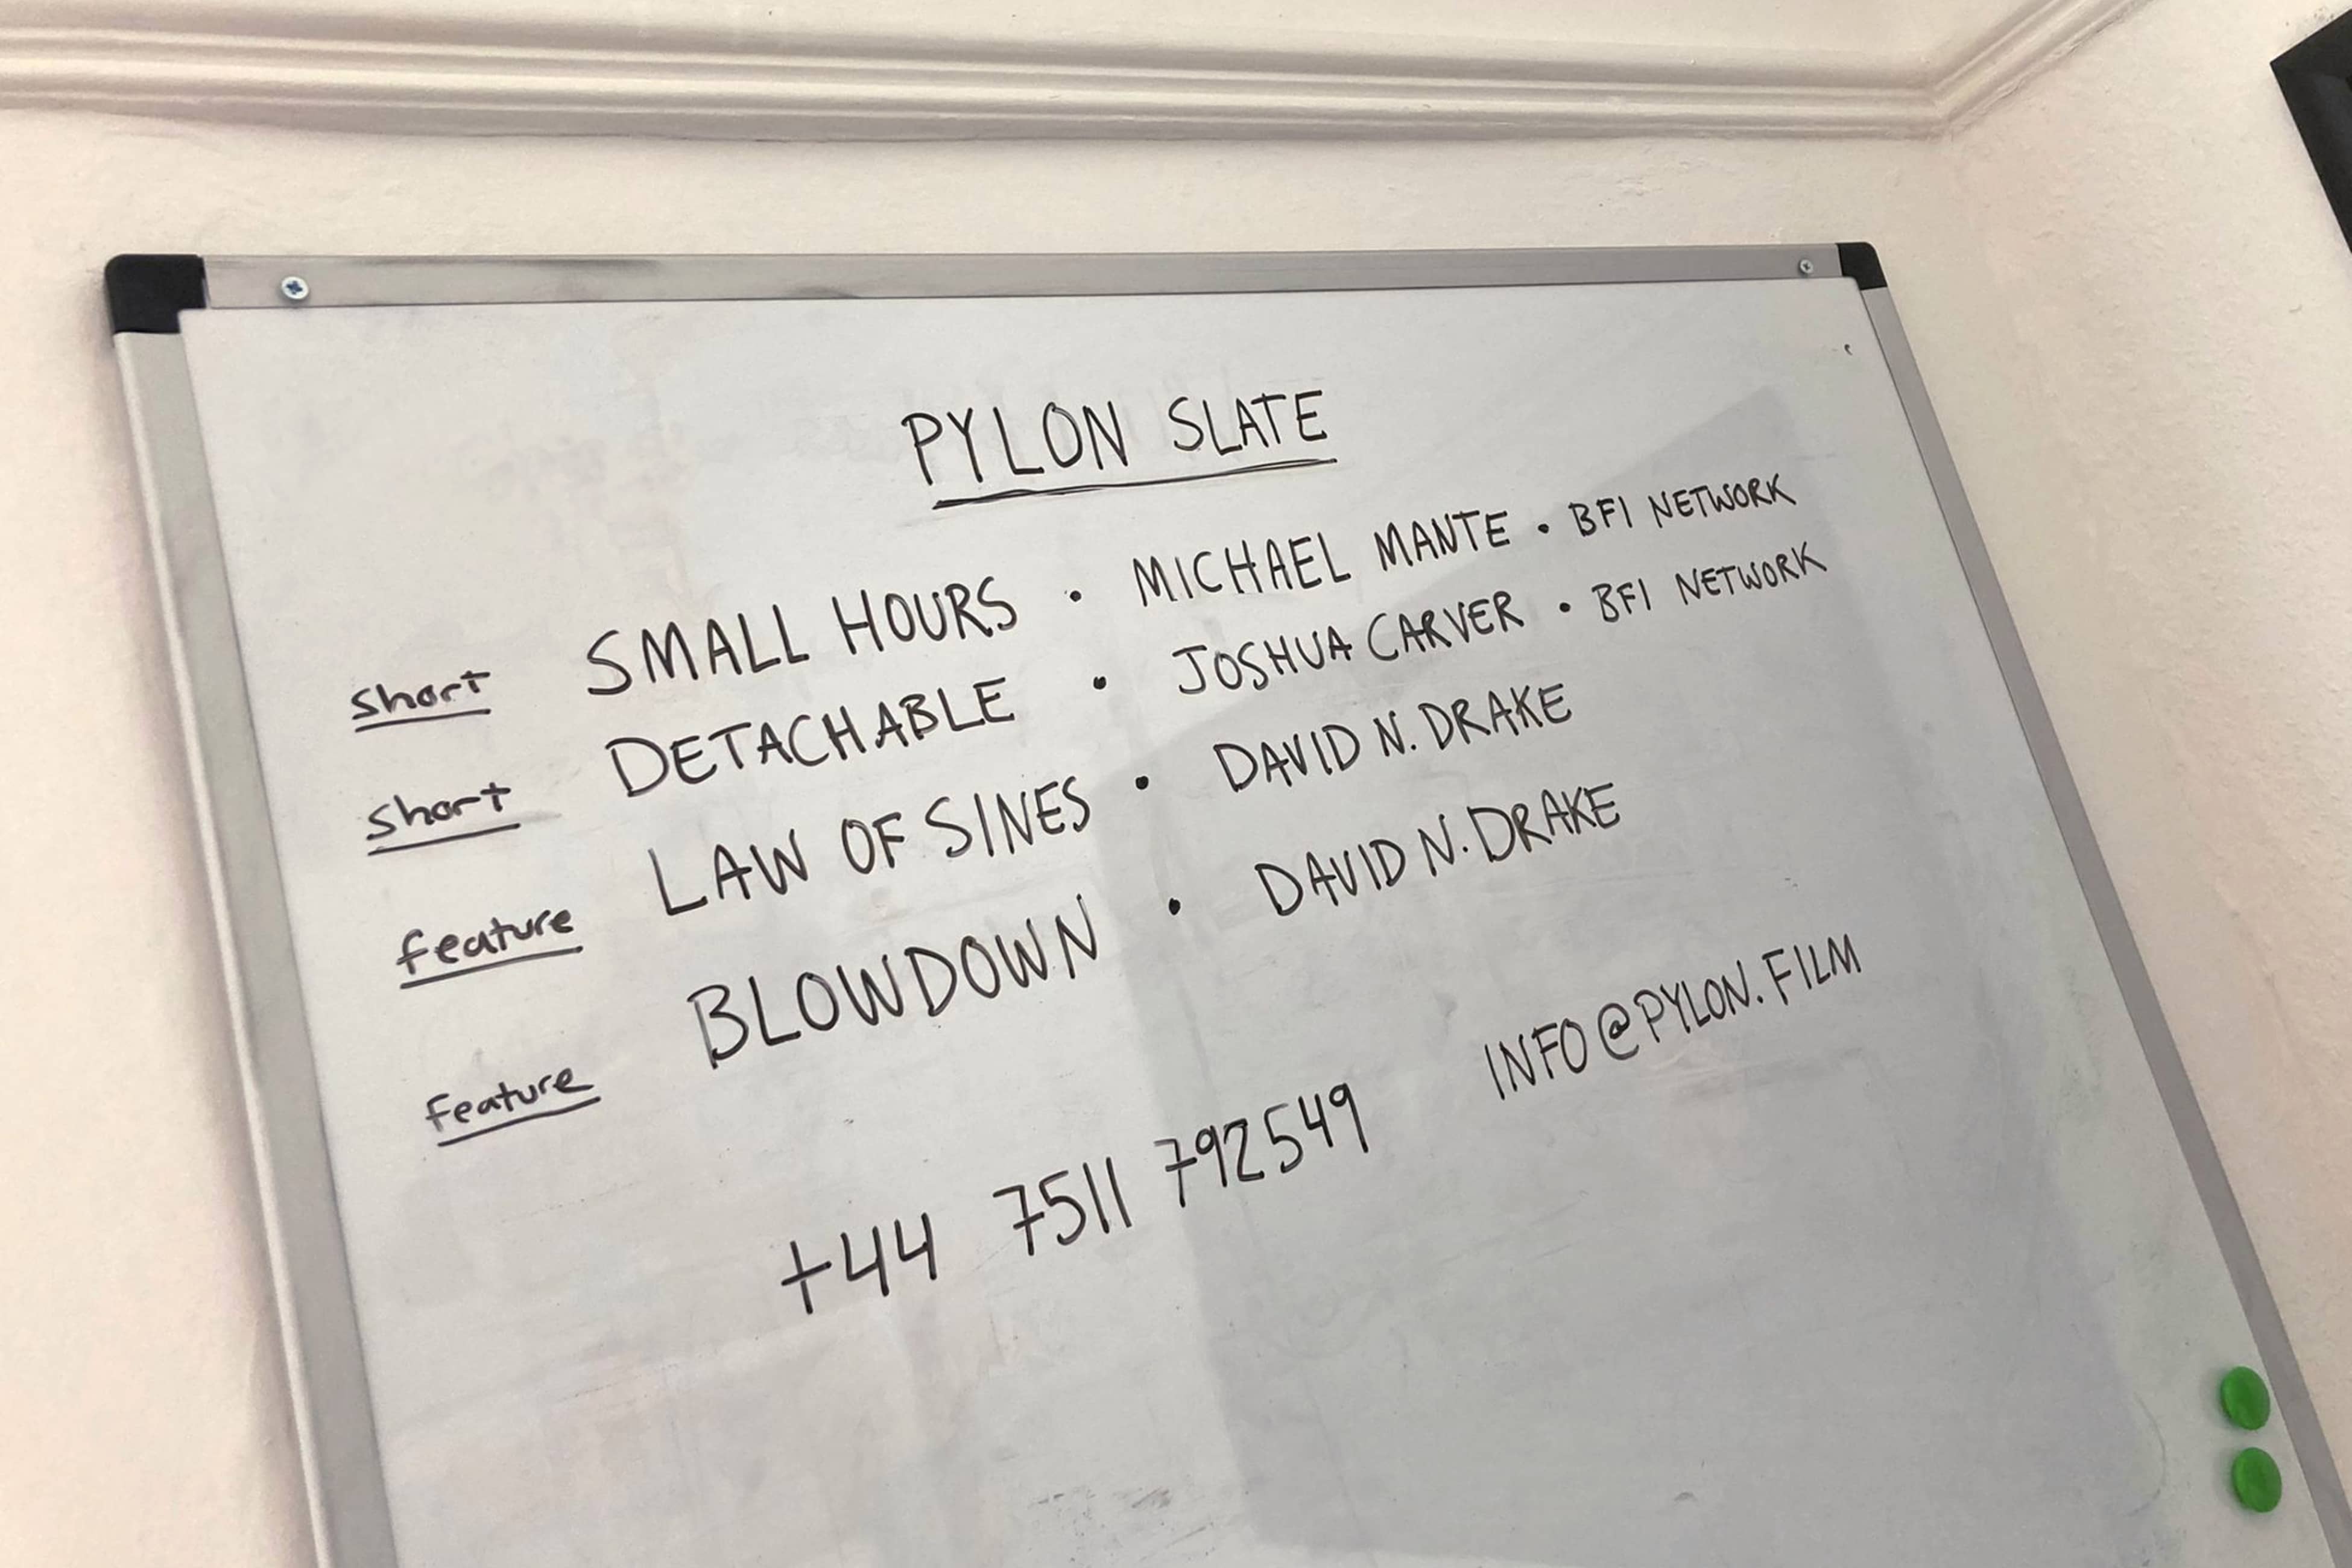 PYLON SLATE
short SMALL HOURS • MICHAEL MANTE • BFI NETWORK
short DETACHABLE • JOSHUA CARVER • BFI NETWORK
feature LAW OF SINES • DAVID N. DRAKE
feature BLOWDOWN • DAVID N. DRAKE
+44 7511 792549 INFO@PYLON.FILM